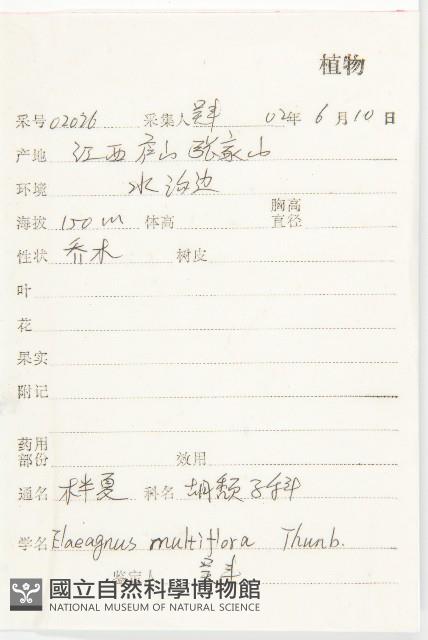 植物
采号 02026 采集人 02年 6月10日
产地 江西庐山张家山
环境 水沟边
海拔 150m 体高 胸高直径
性状 乔木 树皮
叶
花
果实
附记
药用部份 效用
通名 木半夏 科名 胡颓子科
学名 Elaeagnus multiflora Thunb.
鉴定人
國立自然科學博物館
NATIONAL MUSEUM OF NATURAL SCIENCE